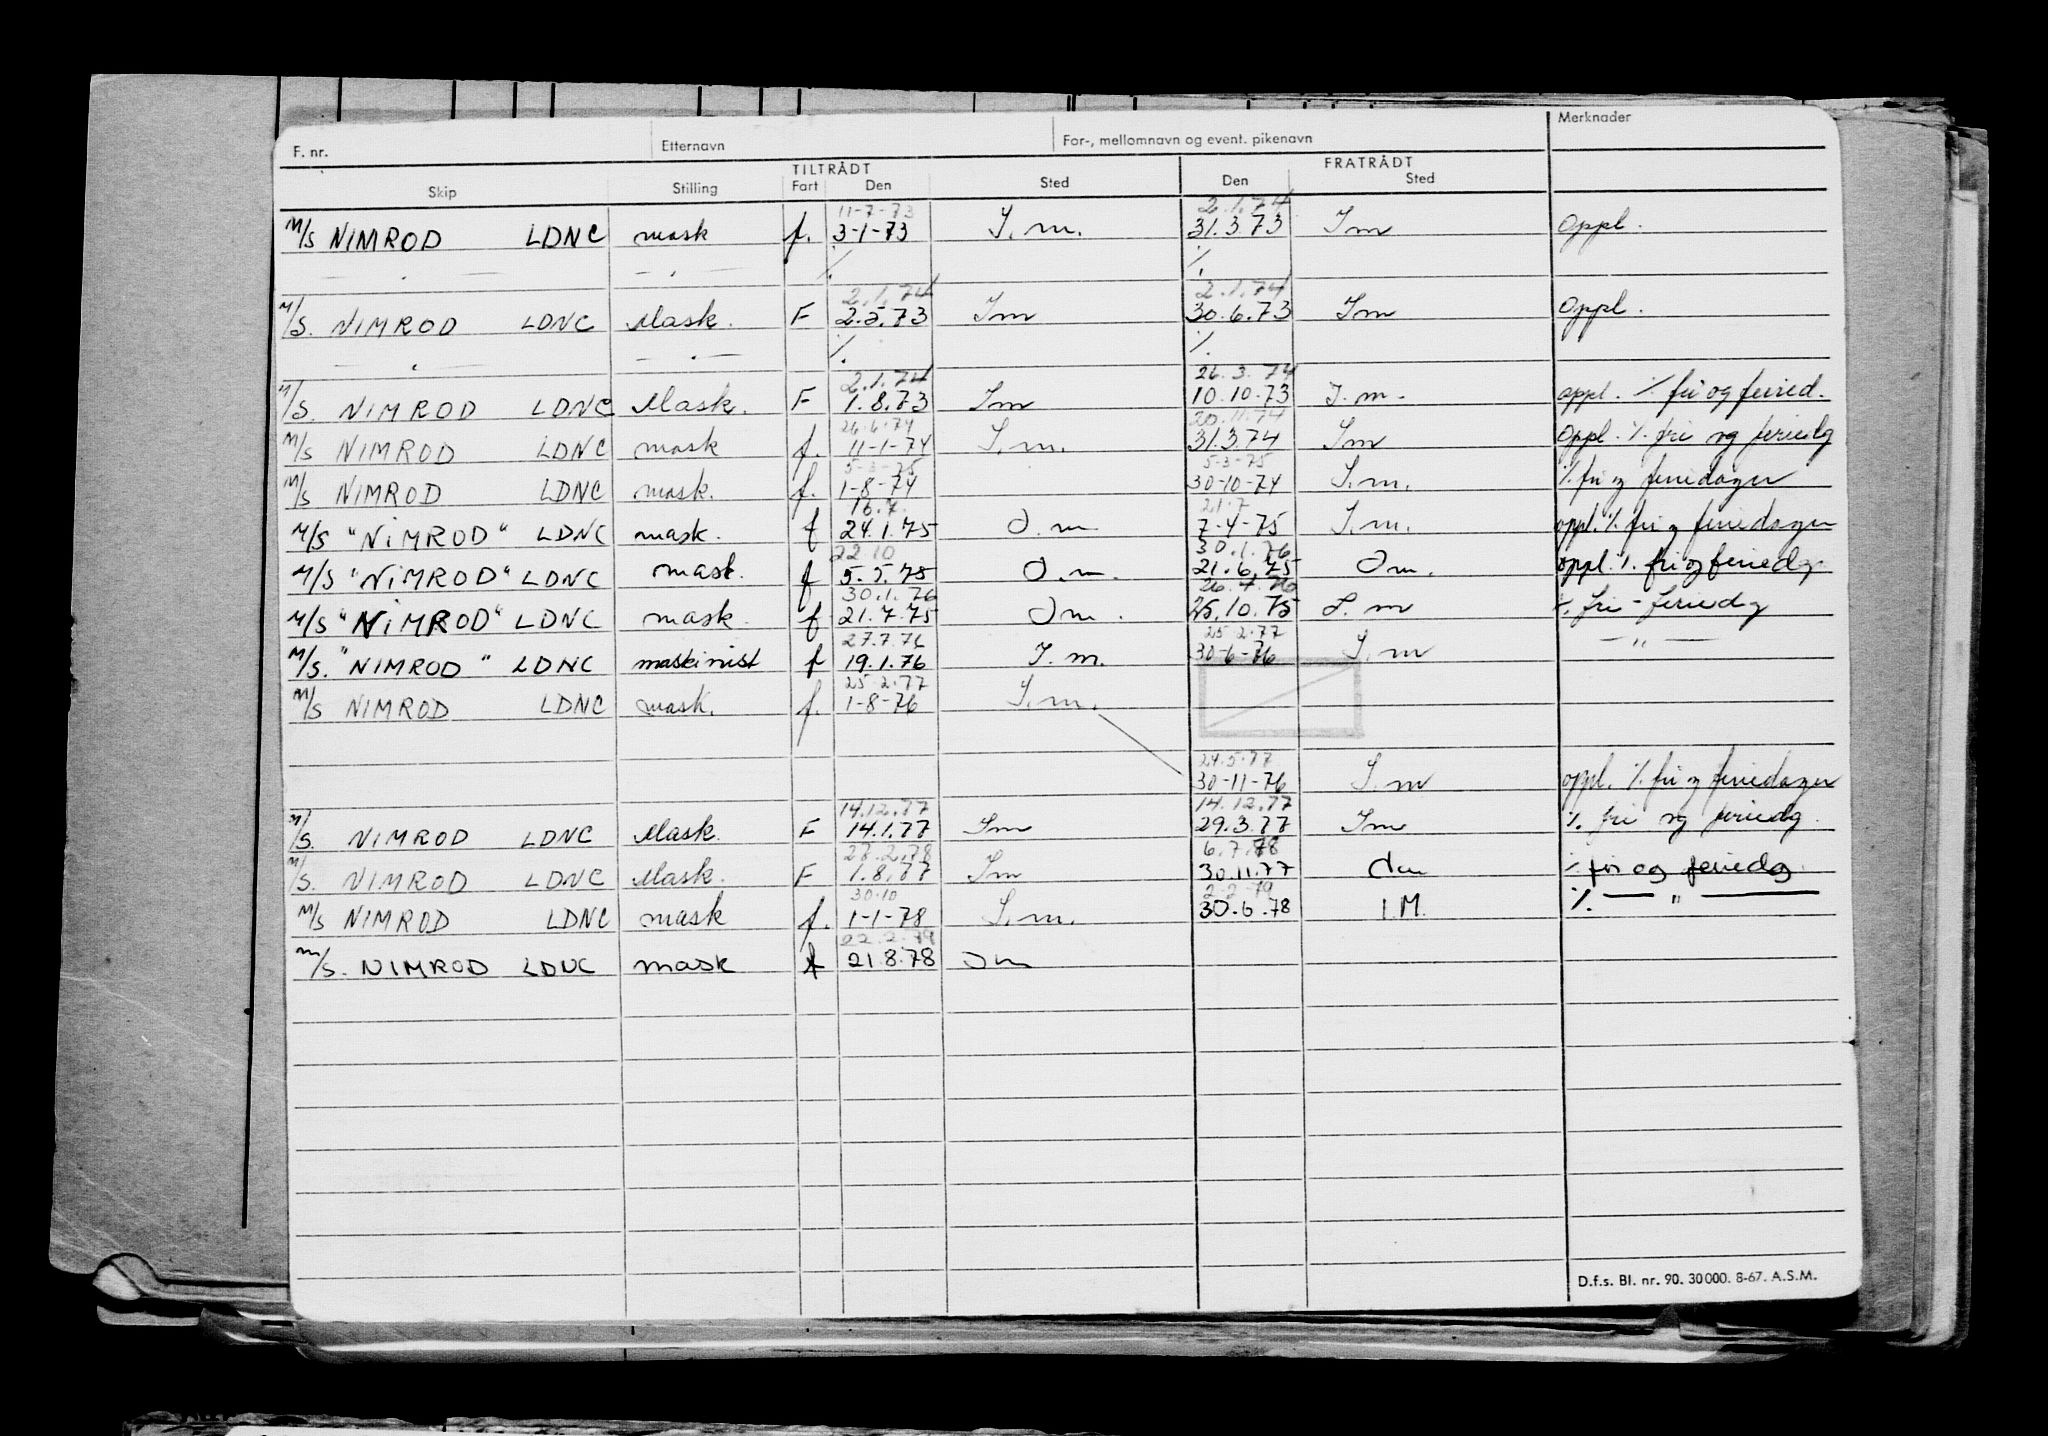 F. nr. Etternavn For-, mellomnavn og event. pikenavn Merknader
TILTRÅDT FRATRÅDT
Skip Stilling Fart Den Sted Den Sted
11-7-73 2.1.74
M/S NIMROD LDNC mask f. 3-1-73 I.m. 31.3.73 Im Oppl.
— . — — . — % %
2.1.74 2.1.74
M/S. NIMROD LDNC Mask. F 2.5.73 Im 30.6.73 Im Oppl.
— . — — . — % %
2.1.74 26.3.74
M/S. NIMROD LDNC Mask. F 1.8.73 Im 10.10.73 I.m. oppl. % fri og feried.
26.6.74 20.11.74
M/S NIMROD LDNC mask f. 11-1-74 I.m. 31.3.74 Im Oppl. % fri og feriedg
5-3-75 5-3-75
M/S NIMROD LDNC mask. f. 1-8-74 30-10-74 I.m. % fri og feriedager
16.7. 21.7
M/S "NIMROD" LDNC mask. f 24.1.75 I.m 7-4-75 I.m. oppl. % fri og feriedager
22 10 30.1.76
M/S "NIMROD" LDNC mask. f 5.5.75 I.m. 21.6.75 Im. oppl. % fri og feriedg
30.1.76 26.7.76
M/S "NIMROD" LDNC mask. f 21.7.75 Im. 25.10.75 I.m %. fri - feriedg
27.7.76 25-2-77
M/S. "NIMROD" LDNC maskinist f 19.1.76 I.m. 30-6-76 I.m — " —
25.2.77
M/S NIMROD LDNC mask. f. 1-8-76 I.m.
24.5.77
30-11-76 I.m oppl. % fri og feriedager
14.12.77 14.12.77
M/S. NIMROD LDNC Mask. F 14.1.77 Im 29.3.77 Im %. fri og feriedg.
27.2.78 6.7.78
M/S. NIMROD LDNC Mask. F 1.8.77 Im 30.11.77 % fri og feriedg
30.10 2-2-79
M/S NIMROD LDNC mask f. 1-1-78 I.m. 30.6.78 I.M. %. — " —
22.2.79
M/S. NIMROD LDNC mask f 21.8.78 Im
D.f.s. Bl. nr. 90. 30000. 8-67. A.S.M.